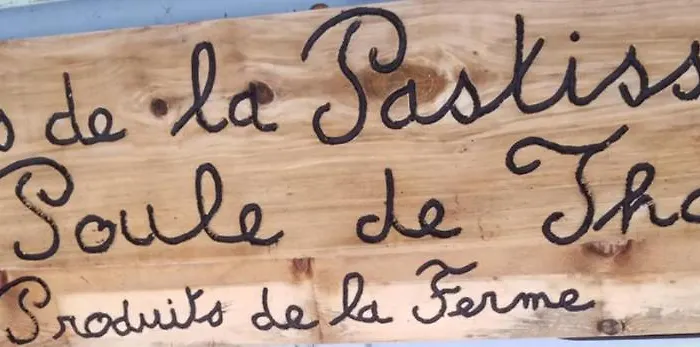 de la Pastiss
Poule de Tho
Produits de la Ferme